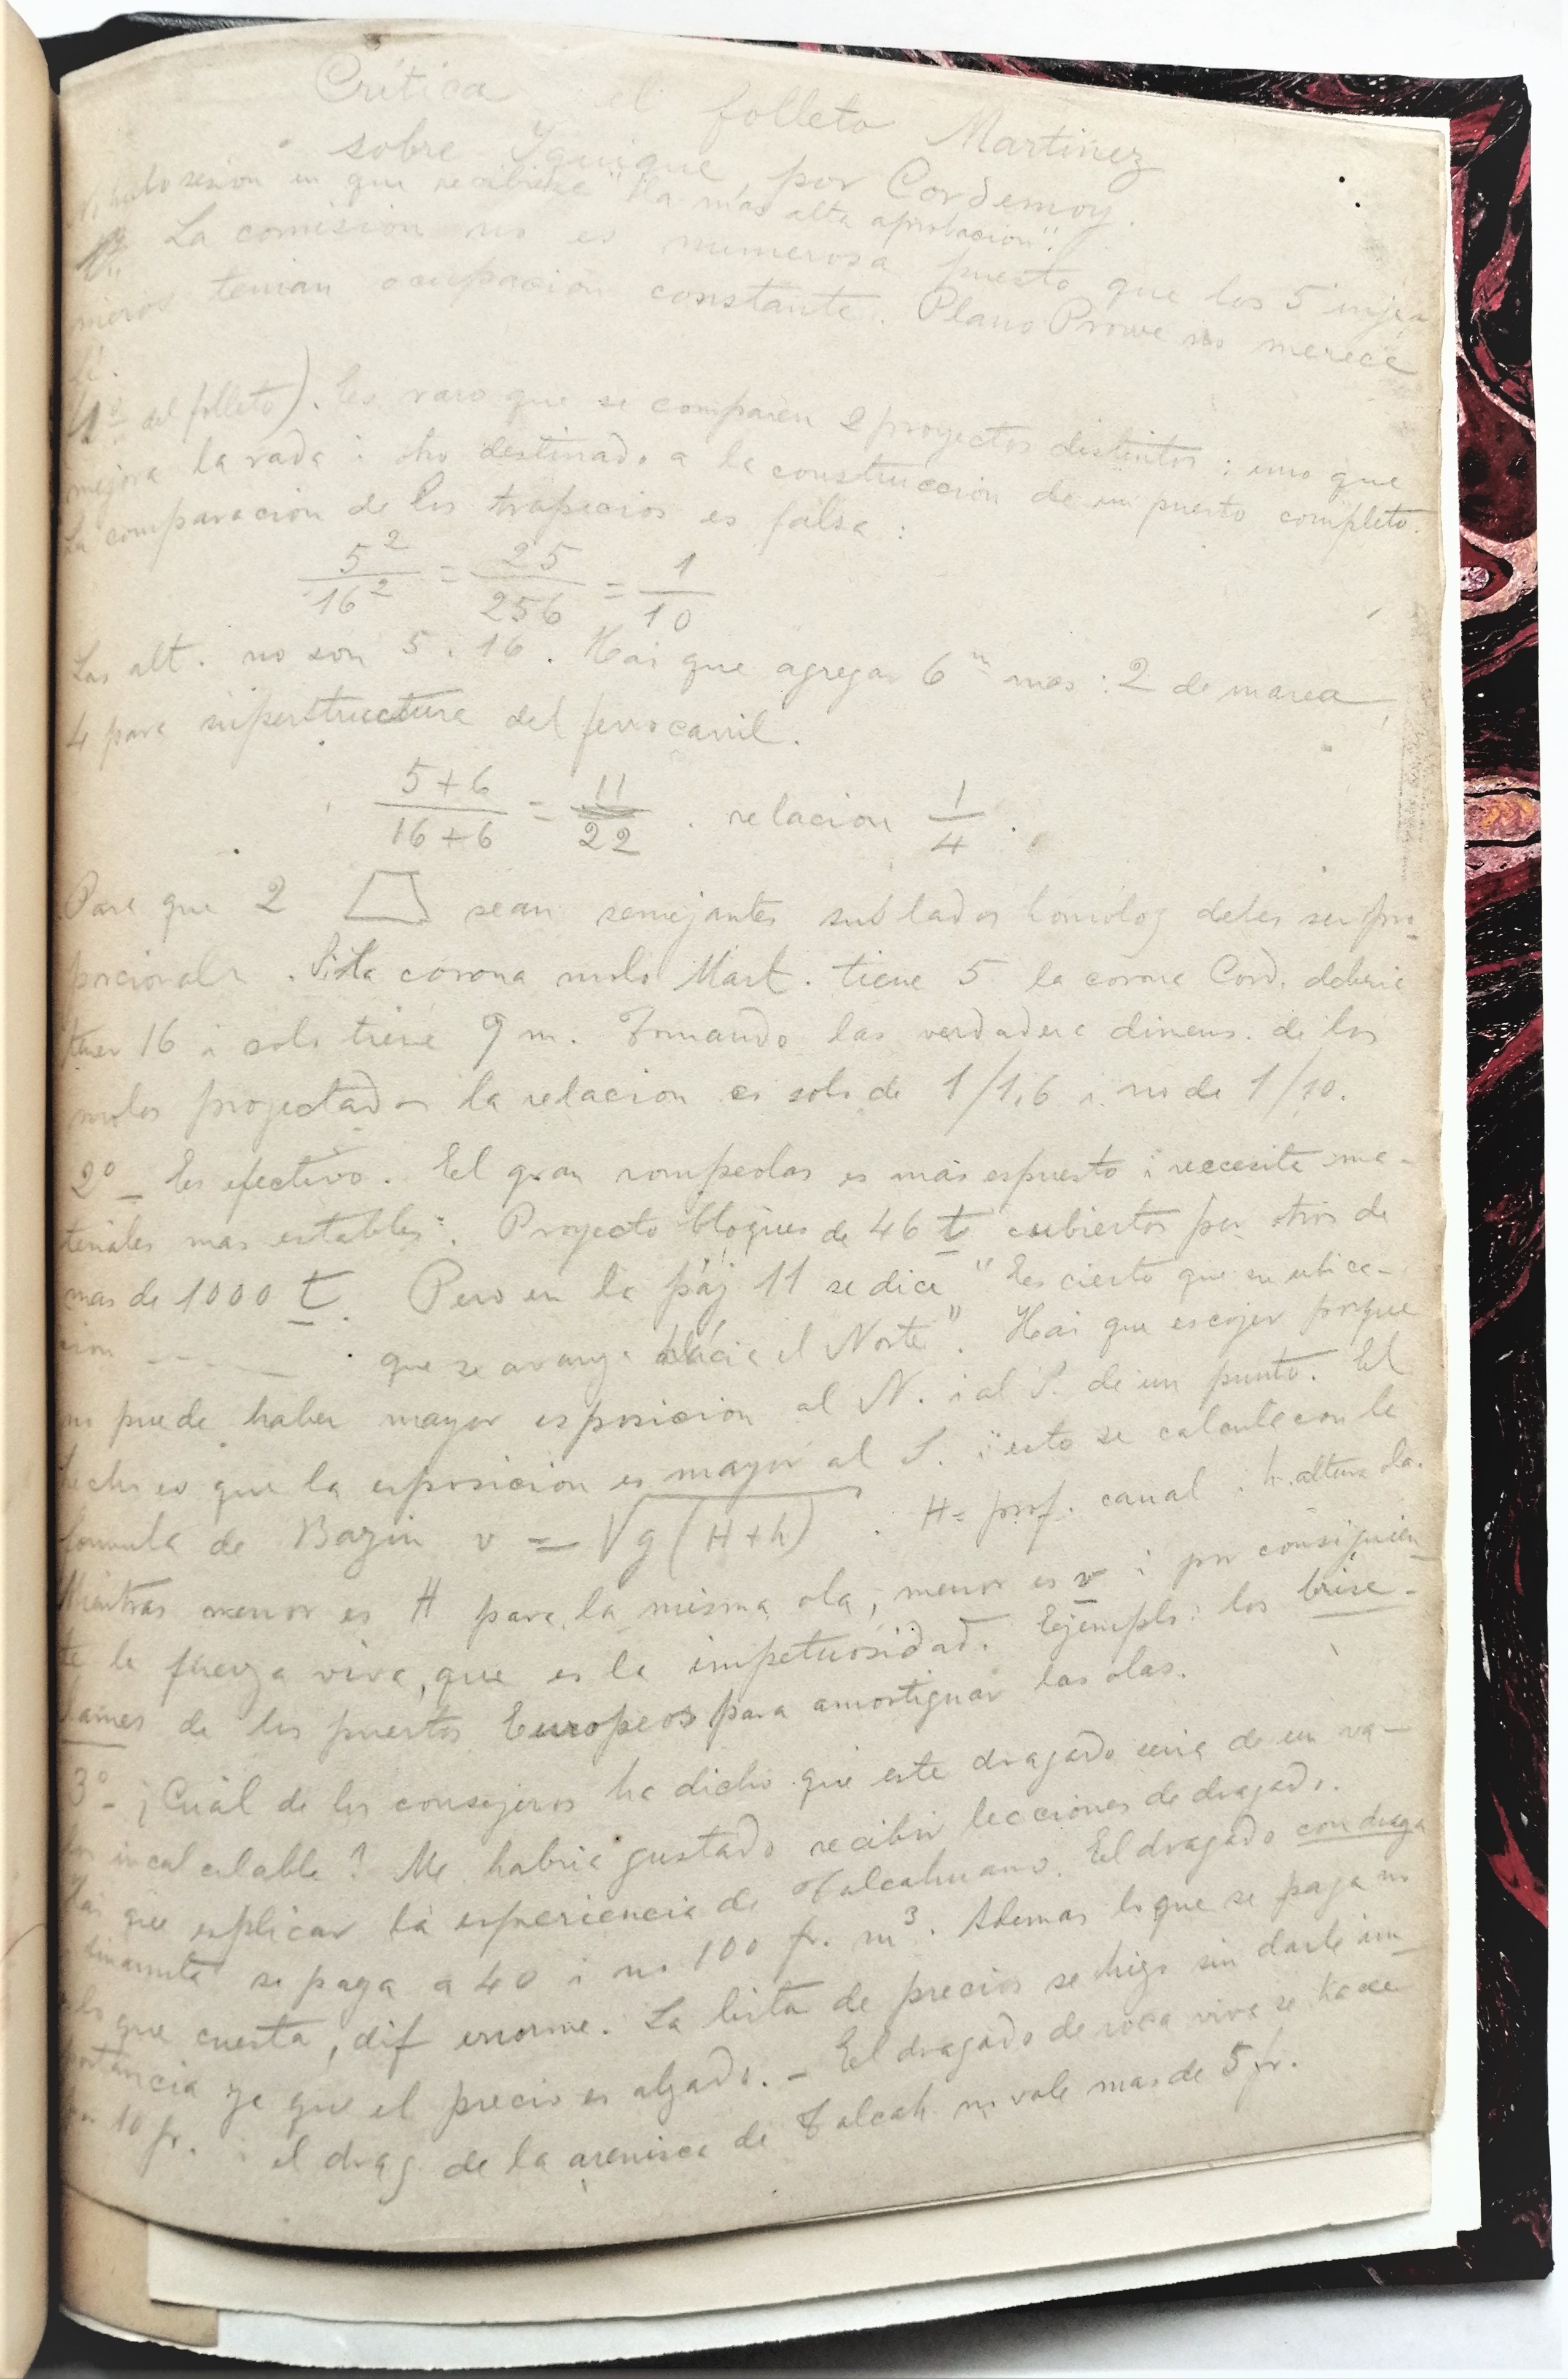 Crítica el folleto Martinez
sobre Iquique, por Cordemoy.
sesion en que recibiese "la mas alta aprobacion".
1º La comision no es numerosa puesto que los 5 inje-
nieros tenian ocupacion constante. Plano Prowe no merece
fé.
(1º del folleto). Es raro que se comparen 2 proyectos distintos: uno que
mejora la rada i otro destinado a la construccion de un puerto completo.
La comparacion de los trapecios es falsa:
5²/16² = 25/256 = 1/10
Las alt. no son 5 i 16. Hai que agregar 6 m mas: 2 de marea,
4 para superstructure del ferrocarril.
5+6/16+6 = 11/22. relacion 1/4.
Para que 2 sean semejantes sus lados homólog deben ser pro-
porcionals. Si la corona molo Mart. tiene 5 la corona Cord. deberia
tener 16 i solo tiene 9 m. Tomando las verdadera dimens. de los
molos projectados la relacion es solo de 1/1,6 i no de 1/10.
2º Es efectivo. El gran rompeolas es más espuesto i necesita ma-
teriales mas estables. Proyecto bloques de 46 t cubiertos por otros de
mas de 1000 t. Pero en la páj 11 se dice "Es cierto que su ubica-
cion ---- que se avanza hácia el Norte". Hai que escojer porque
no puede haber mayor esposicion al N. i al S. de un punto. El
hecho es que la esposicion es mayor al S. i esto se calcula con la
formula de Bazin v = √g(H+h). H= prof. canal i h. altura ola.
Mientras menor es H para la misma ola, menor es v i por consiguien-
te la fuerza viva, que es la impetuosidad. Ejemplo: los brise-
lames de los puertos Europeos para amortiguar las olas.
3º ¿Cuál de los consejeros ha dicho que este dragado seria de un va-
lor incalculable? Me habria gustado recibir lecciones de dragado.
Hai que esplicar la esperiencia de Talcahuano. El dragado con draga
dinamita se paga a 40 i no 100 fr. m³. Ademas lo que se paga no
es lo que cuesta, dif enorme. La lista de precios se hizo sin darle im-
portancia ya que el precio es alzado. - El dragado de roca viva se hace
por 10 fr. i el drag. de la arenisca de Talcah no vale mas de 5 fr.